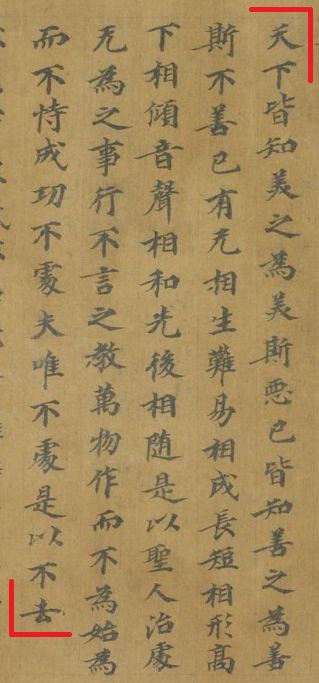 天下皆知美之為美斯惡已皆知善之為善
斯不善已有无相生難易相成長短相形高
下相傾音聲相和先後相随是以聖人治處
无為之事行不言之教萬物作而不為始為
而不恃成功不處夫唯不處是以不去